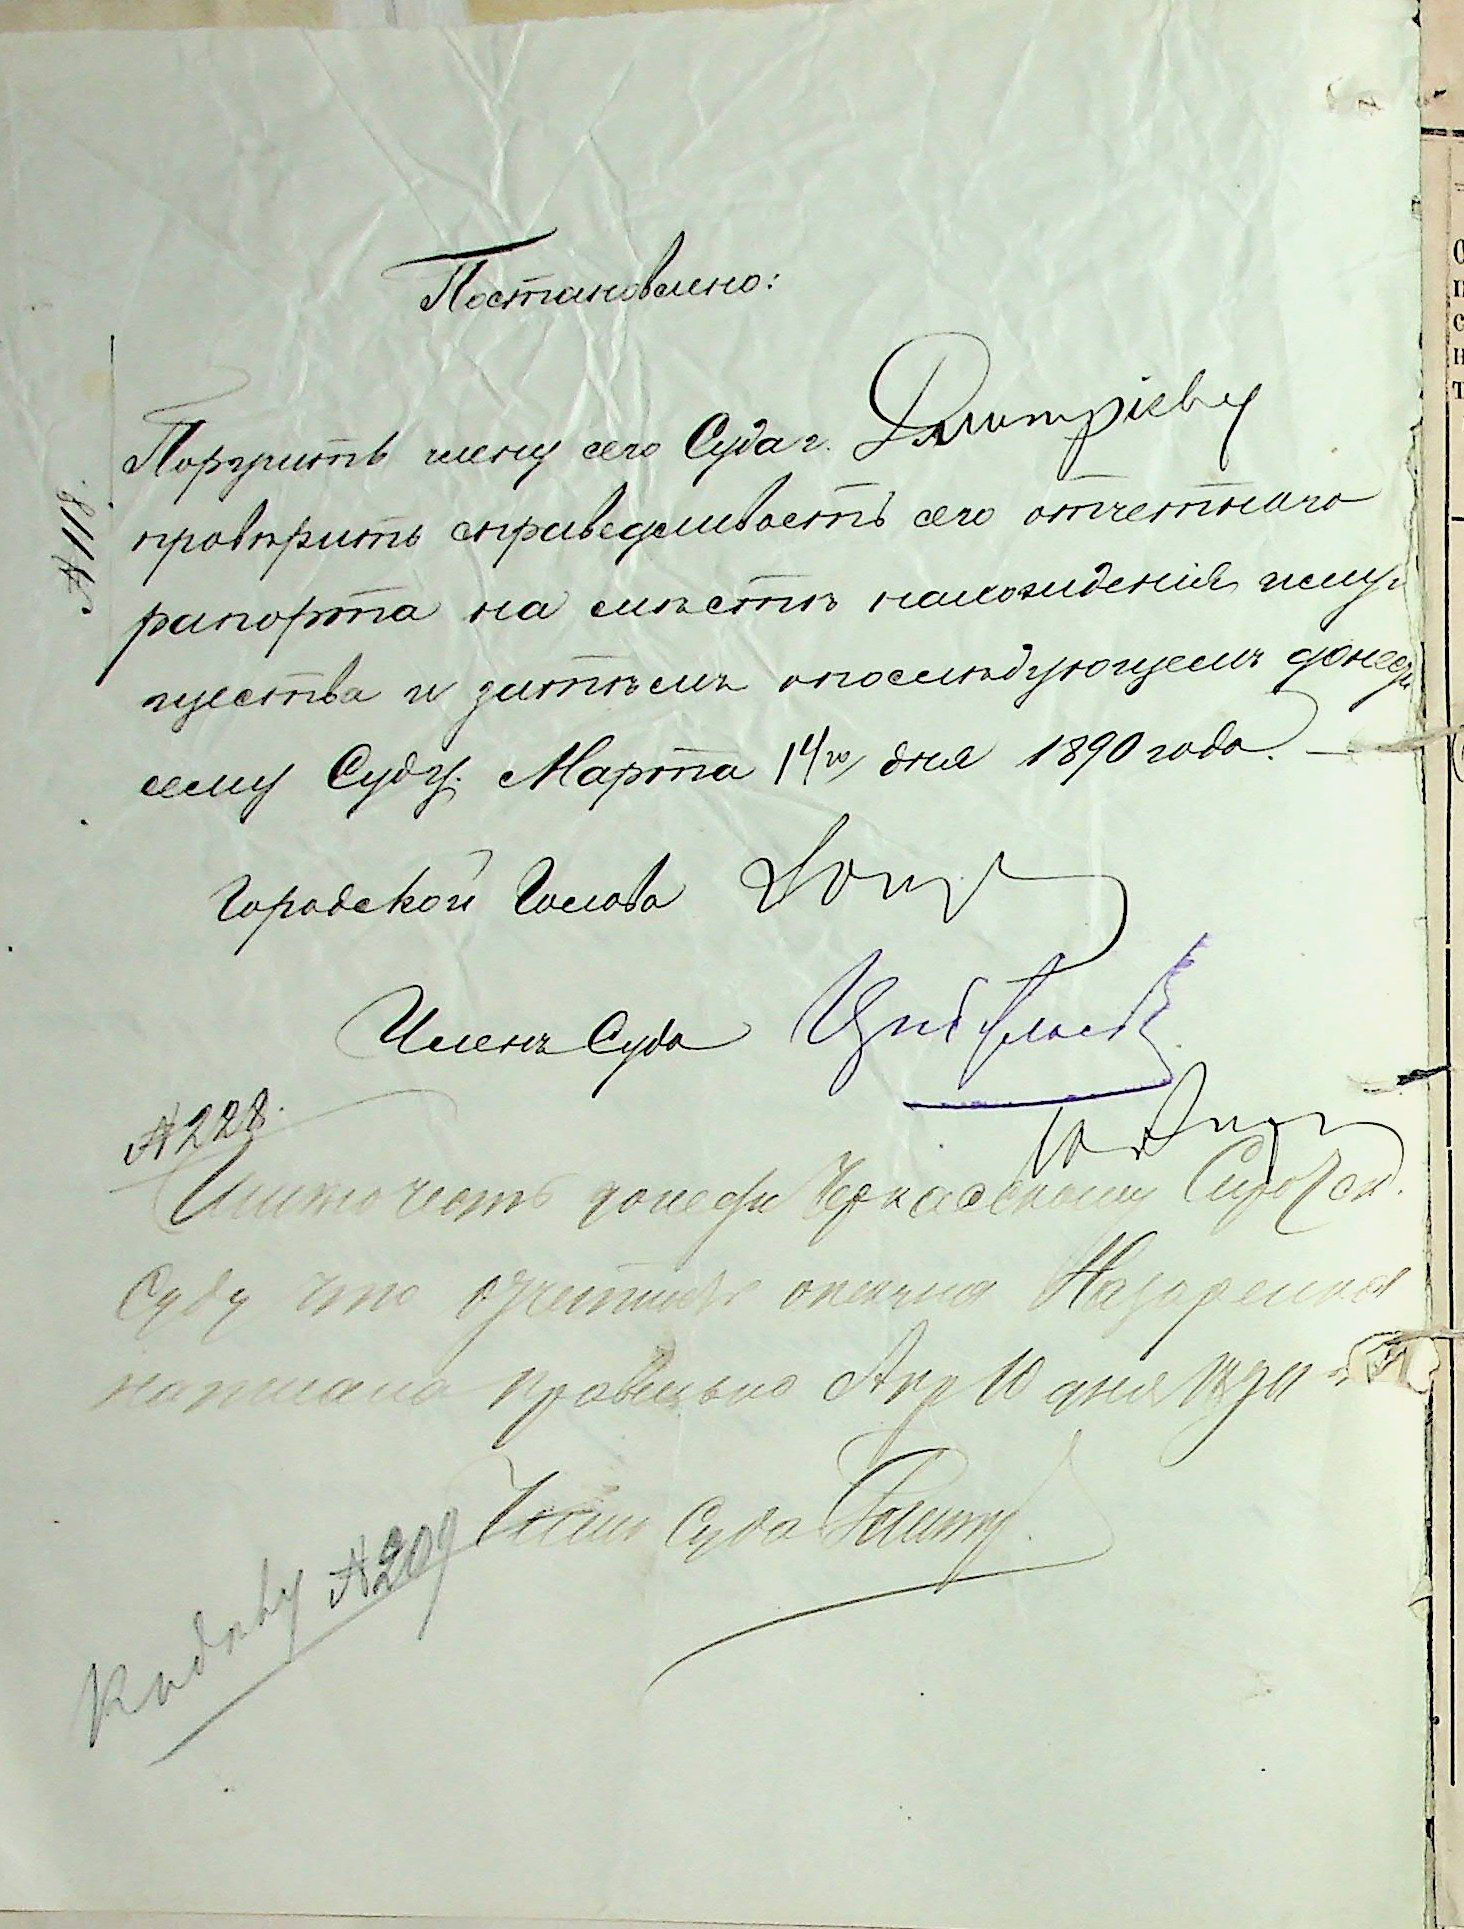 Постановлено:
№ 118.
Поручить члену сего Суда г. Дмитріеву
провѣрить справедливость сего отчетнаго
рапорта на мѣстѣ нахожденія иму-
щества и затѣмъ о послѣдующемъ донести
сему Суду. Марта 14го дня 1890 года.
Городской Голова
Членъ Суда
№ 228.
Имѣю честь донести Черкасскому Сиротск.
Суду что отчетность опекуна Назаренка
написана правильно Апр 10 дня 1890 г.
Членъ Суда
№ 209